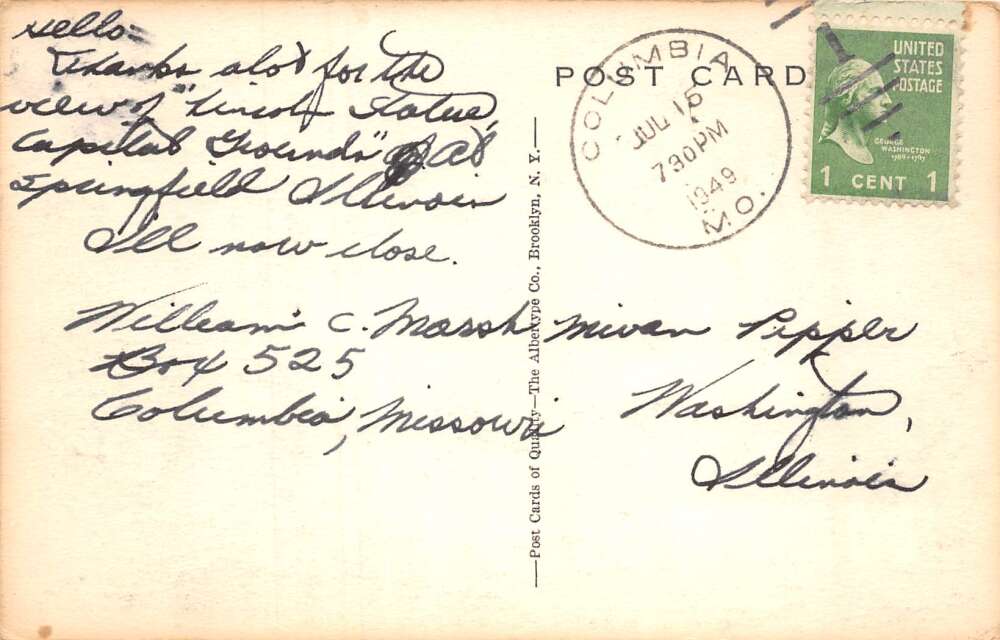 Hello-
Thanks alot for the
view of "Lincoln Statue,
Capital Grounds" at
Springfield Illinois
Ill now close.
William C. Marsh
Box 525
Columbia, Missouri
POST CARD
COLUMBIA
JUL 15
730 PM
1949
MO.
UNITED
STATES
POSTAGE
GEORGE
WASHINGTON
1789-1797
1 CENT 1
—Post Cards of Quality—The Albertype Co., Brooklyn, N. Y.—
Pepper
Washington,
Illinois